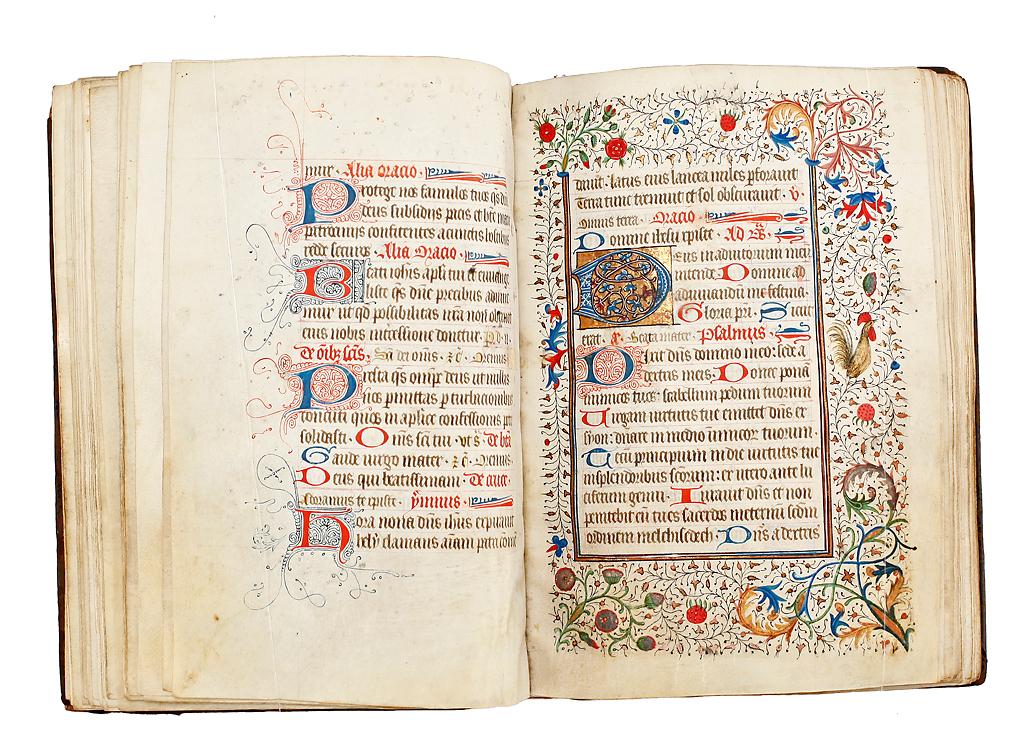 mur. Alia oracio.
Protege nos famulos tuos qs dn̄e
deus subsidiis pacis et bt̄e
patrociniis confitentes a cunctis hostibus
redde securos. Alia Oracio.
Beati ioh̄is apl̄i tui et euāge
liste qs dn̄e precibus adiuue
mur ut qd possibilitas nr̄a non optinet
eius nobis int̄cessione donetur. P d n̄
De oīb; scīs. Sā dei om̄s. ⁊ c̄. Oremus.
Presta qs om̄ps deus ut nullis
nos pmittas pturbacionibus
concuti quos in aplice confessionis pe
solidasti. Om̄s scī tui. vt s̄. De btā
Gaude uirgo mater. ⁊ c̄. Oremus.
Deus qui beatissimam. De cruce.
Adoramus te xp̄iste. ẏmnus.
Hora nona dn̄s ih̄us expirauit
hely clamans aīam patri
dauit. latus eius lancea miles pforauit
Terra tunc tremuit et sol obscurauit. v̄
omnis terra. Oracio
Domine ih̄esu xp̄iste. Ad
Deus in adiutorium meū
intende. Domine ad
adiuuandū me festina.
Gloria pri. Sicut
erat. a. Beata mater. Psalmus.
Dixit dn̄s domino meo: sede a
dextris meis. Donec ponā
inimicos tuos: scabellum pedum tuorum
Uirgam uirtutis tue emittet dn̄s ex
syon: dn̄are in medio inimicor tuorum.
Tecū principium in die uirtutis tue
in splendoribus sc̄orum: ex utero ante lu
ciferum genui. Iurauit dn̄s et non
penitebit eū tu es sacerdos in eternū scdm̄
ordinem melchisedech. Dn̄s a dextris